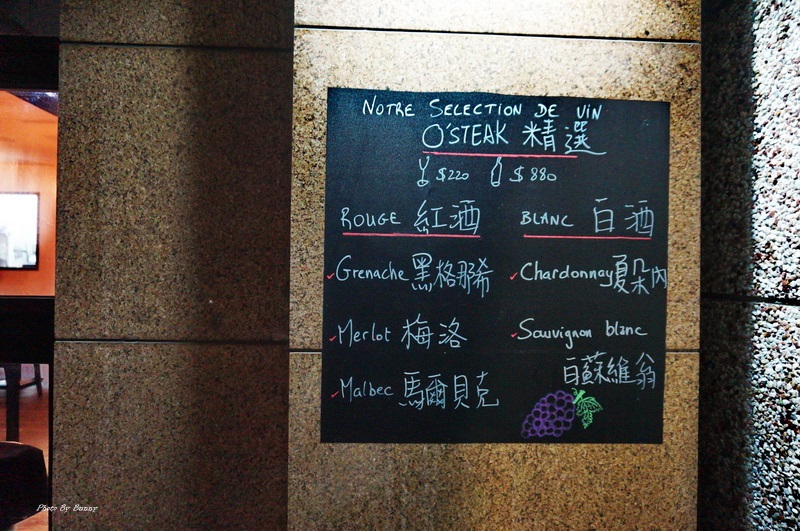 NOTRE SELECTION DE VIN
O'STEAK 精選
$220 $880
ROUGE 紅酒
Grenache 黑格那希
Merlot 梅洛
Malbec 馬爾貝克
BLANC 白酒
Chardonnay 夏朵內
Sauvignon blanc
白蘇維翁
Photo By Bunny